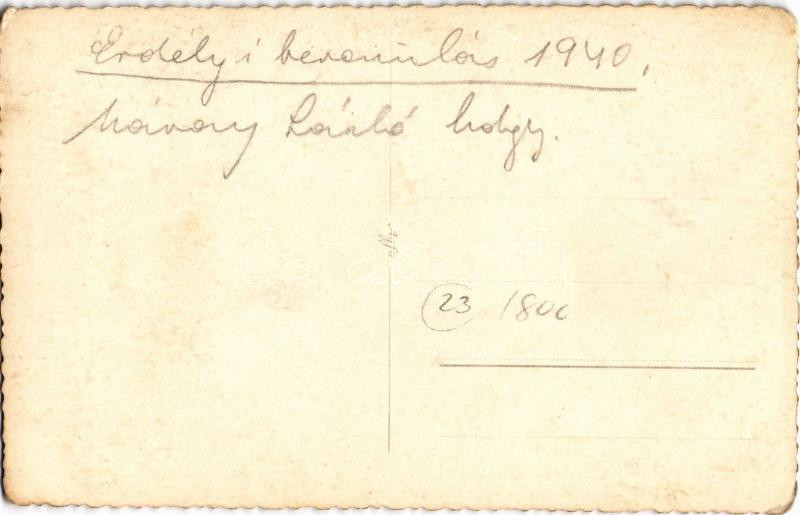 Erdélyi bevonulás 1940,
László hdgy.
23 1800